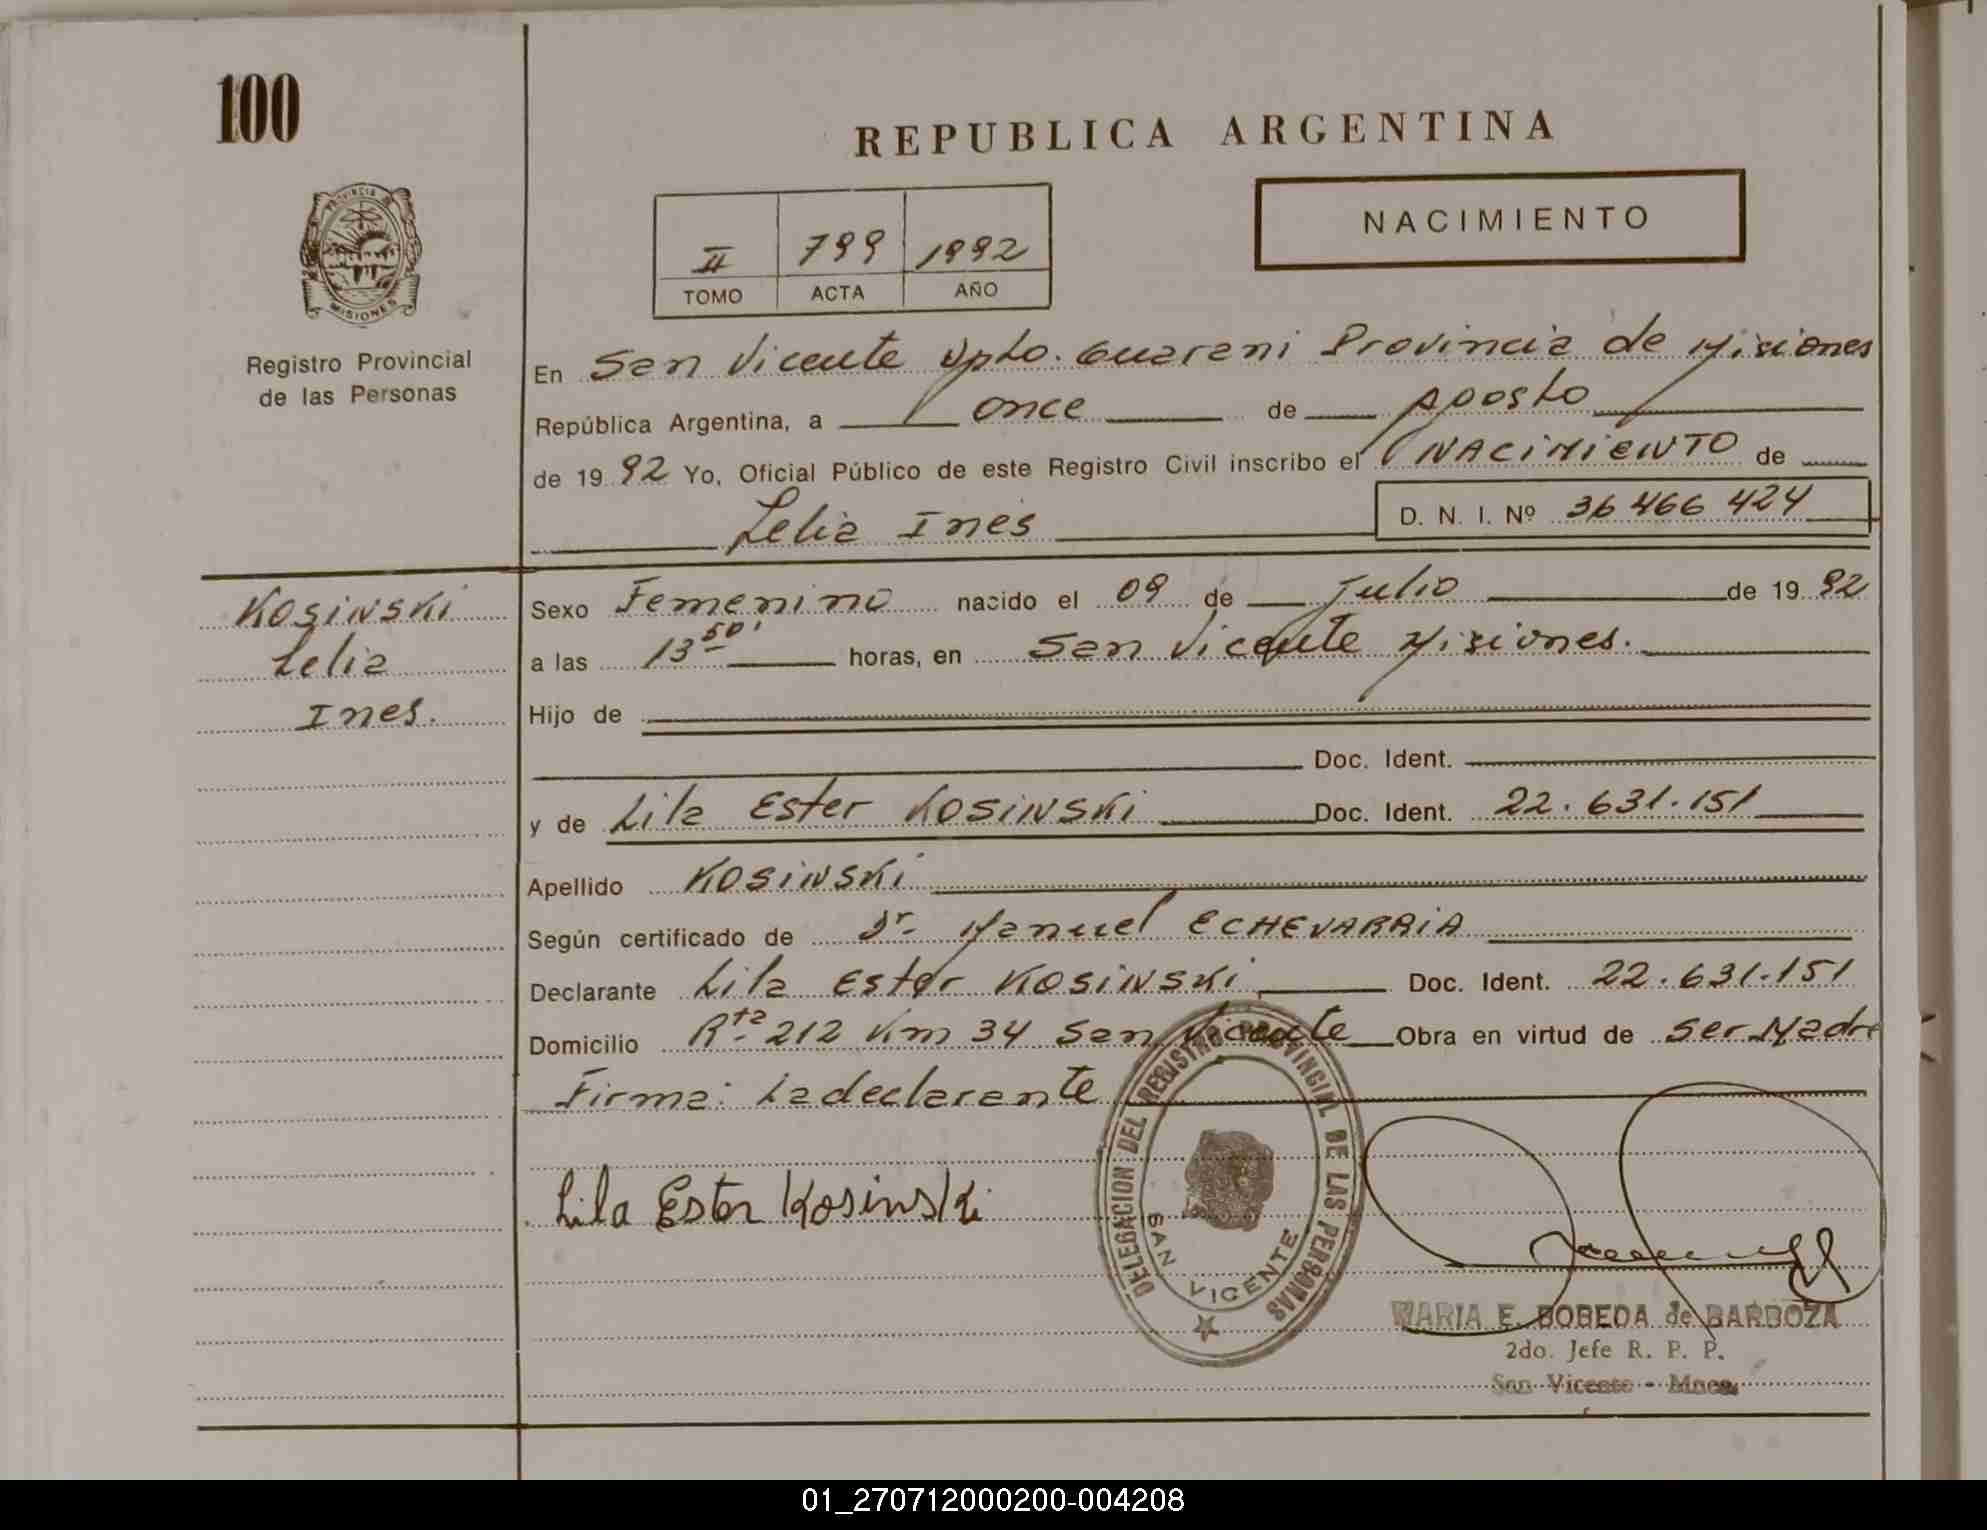 100
REPUBLICA ARGENTINA
NACIMIENTO
II 799 1992
TOMO ACTA AÑO
PROVINCIA DE
MISIONES
Registro Provincial
de las Personas
En San Vicente Dpto. Guarani Provincia de Misiones
República Argentina, a once de Agosto
de 1992 Yo, Oficial Público de este Registro Civil inscribo el NACIMIENTO de
Lelia Ines D. N. I. Nº 36 466 424
Kosinski
Lelia
Ines.
Sexo Femenino nacido el 09 de Julio de 1992
a las 13 50' horas, en San Vicente Misiones.
Hijo de
Doc. Ident.
y de Lila Ester Kosinski Doc. Ident. 22.631.151
Apellido Kosinski
Según certificado de Dr. Manuel ECHEVARRIA
Declarante Lila Ester Kosinski Doc. Ident. 22.631.151
Domicilio Rta 212 Km 34 San Vicente Obra en virtud de Ser Madre
Firma: La declarante
Lila Ester Kosinski
DELEGACION DEL REGISTRO PROVINCIAL DE LAS PERSONAS
SAN VICENTE
MARIA E. BOBEDA de BARBOZA
2do. Jefe R. P. P.
San Vicente - Mnes.
01_270712000200-004208